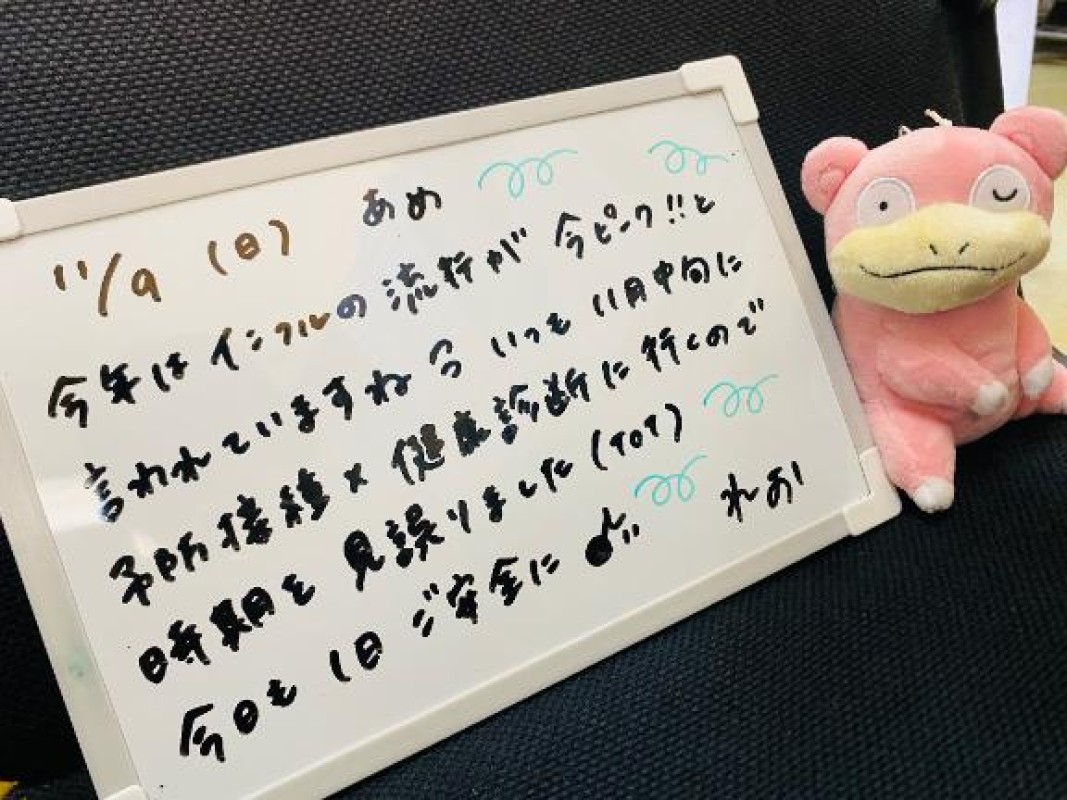 11/9 (日) あめ
今年はインフルの流行が今ピーク!!と
言われていますね いつも11月中旬に
予防接種×健康診断に行くので
時期を見誤りました(ToT)
今日も1日ご安全に♪ れお